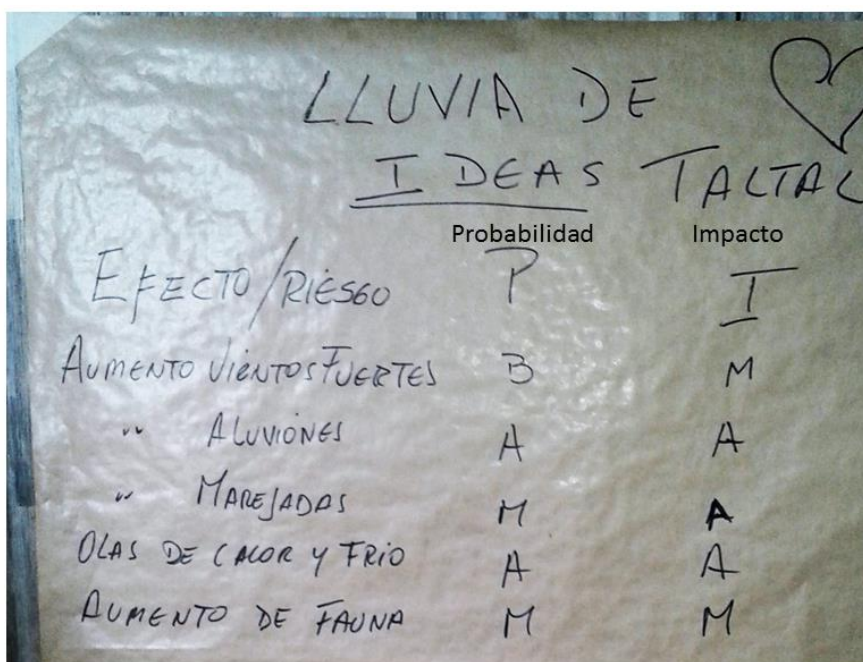 LLUVIA DE
IDEAS TALTAL
Probabilidad Impacto
EFECTO/RIESGO P I
AUMENTO VIENTOS FUERTES B M
" ALUVIONES A A
" MAREJADAS M A
OLAS DE CALOR Y FRIO A A
AUMENTO DE FAUNA M M